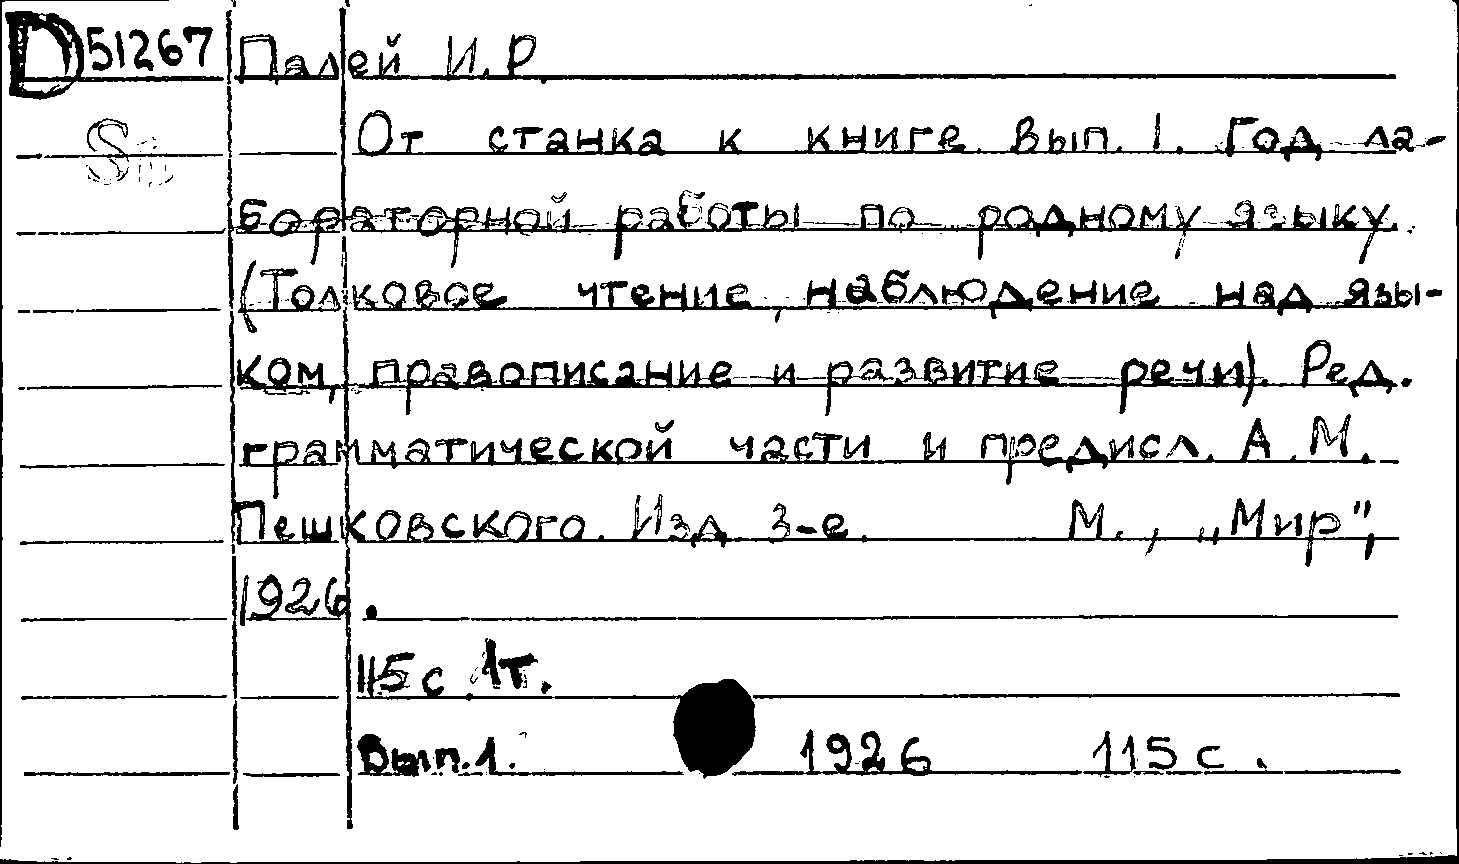 D 51267 Палей И.Р.
От станка к книге. Вып. 1. Год ла-
бораторной работы по родному языку.
(Толковое чтение, наблюдение над язы-
ком, правописание и развитие речи). Ред.
грамматической части и предисл. А.М.
Пешковского. Изд. 3-е. М., „Мир",
1926.
115 с. 1т.
Вып.1. 1926 115 с.